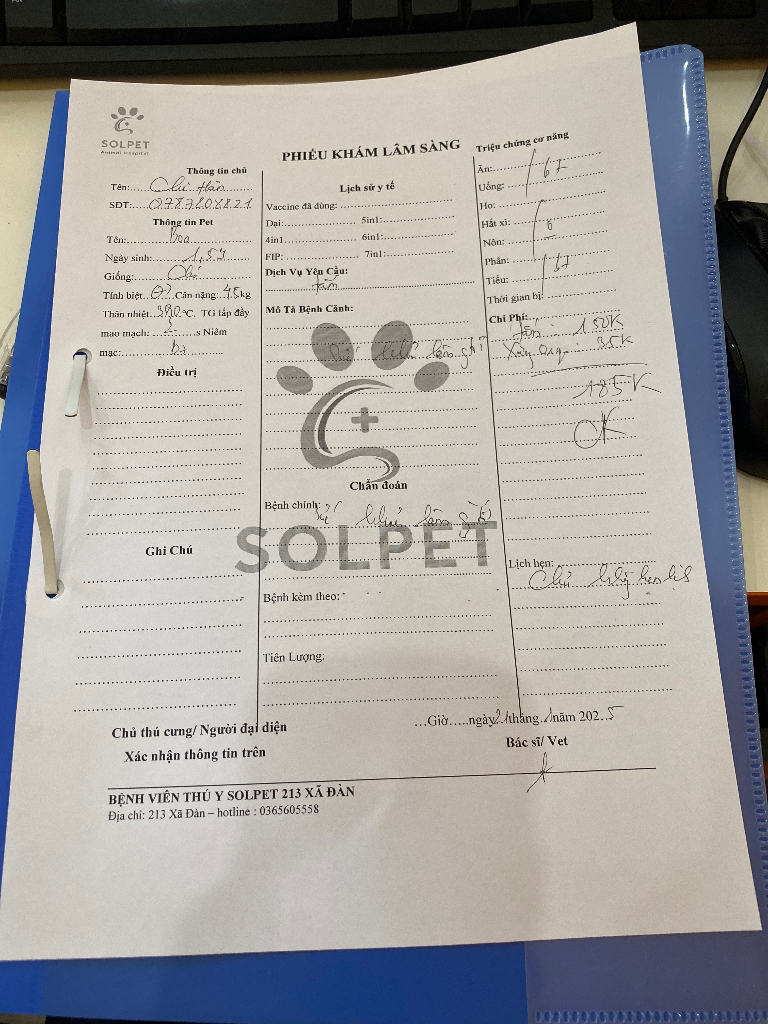 SOLPET
Animal Hospital
PHIẾU KHÁM LÂM SÀNG
Thông tin chủ
Tên:
SĐT: 0787808821
Thông tin Pet
Tên: Boo
Ngày sinh: 1,5y
Giống:
Tính biệt Cân nặng: 4,5kg
Thân nhiệt °C, TG lấp đầy
mao mạch: 2 s Niêm
mạc:
Điều trị
Ghi Chú
Lịch sử y tế
Vaccine đã dùng:
Dại: 5in1:
4in1 6in1:
FIP: 7in1:
Dịch Vụ Yêu Cầu:
Tắm
Mô Tả Bệnh Cảnh:
Chẩn đoán
SOLPET
Bệnh chính:
Bệnh kèm theo:
Tiên Lượng:
Triệu chứng cơ năng
Ăn:
Uống:
Ho:
Hắt xì:
Nôn:
Phân:
Tiểu:
Thời gian bị:
Chi Phí:
Tắm 150K
35K
185K
OK
Lịch hẹn:
...Giờ.....ngày 21 tháng 1 năm 2025
Chủ thú cưng/ Người đại diện
Xác nhận thông tin trên
Bác sĩ/ Vet
BỆNH VIÊN THÚ Y SOLPET 213 XÃ ĐÀN
Địa chỉ: 213 Xã Đàn – hotline : 0365605558